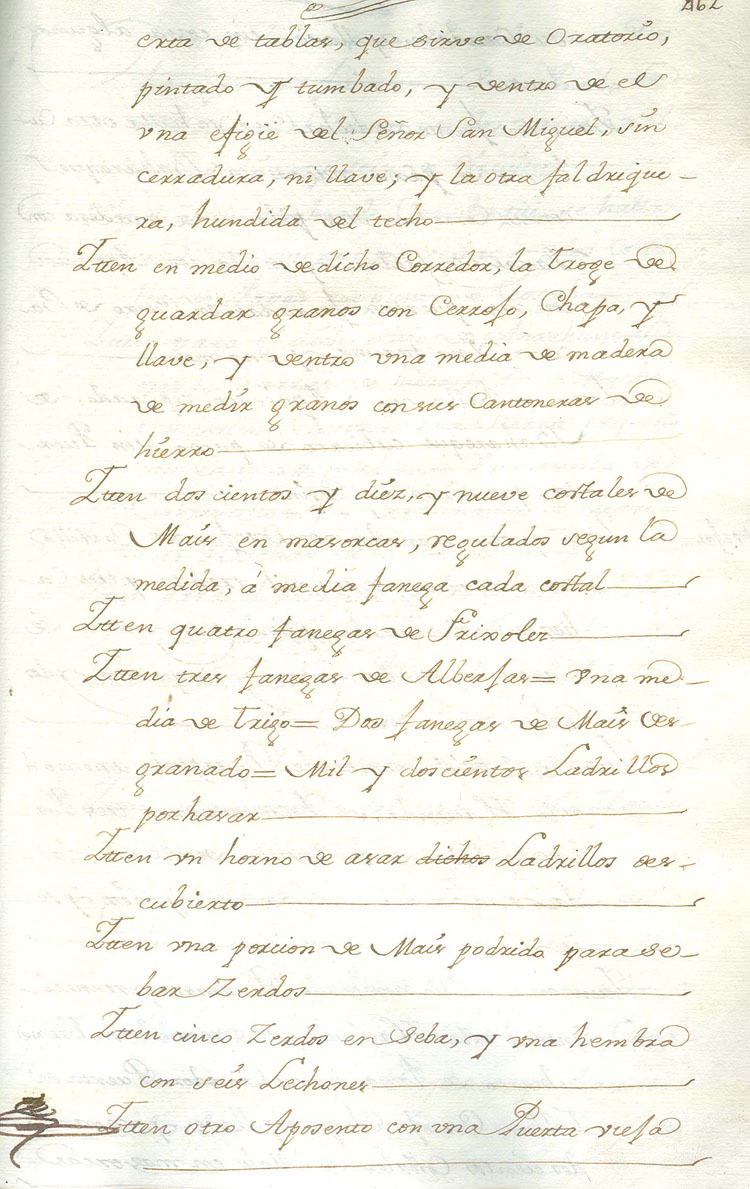 462
erta de tablas, que sirve de Oratorio,
pintado y tumbado, y dentro de el
vna efigie del Señor San Miguel, sin
cerradura, ni llave; y la otra faldrique-
ra, hundida del techo
Itten en medio de dicho Corredor, la troge de
guardar granos con Cerrojo, Chapa, y
llave, y dentro vna media de madera
de medir granos con sus Cantoneras de
hierro
Itten dos cientos y diez, y nueve costales de
Mais en masorcas, regulados segun la
medida, á media fanega cada costal
Itten quatro fanegas de Frixoles
Itten tres fanegas de Alberjas= vna me-
dia de trigo= Dos fanegas de Mais des-
granado= Mil y doscientos Ladrillos
por hasar
Itten vn horno de asar dichos Ladrillos des-
cubierto
Itten vna porcion de Mais podrido para se-
bar Zerdos
Itten cinco Zerdos en seba, y vna hembra
con seis Lechones
Itten otro Aposento con vna Puerta vieja